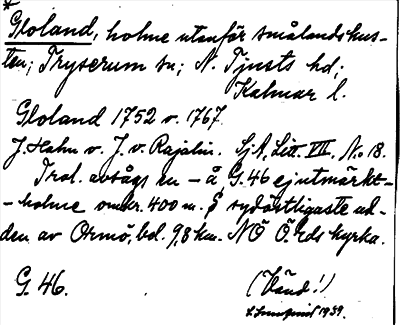 *
Gloland, holme utanför smålandskus-
ten; Tryserum sn; N. Tjusts hd;
Kalmar l.
Gloland 1752 o. 1767.
J. Hahn o. J. v. Rajalin. SjA, Litt. VII. No 18.
Trol. avsågs en - å G. 46 ej utmärkt -
- holme omkr. 400 m. S sydöstligaste ud-
den av Ormö, bel. 9,8 km. NÖ Ö. Eds kyrka.
G. 46.
(Vänd!)
1939.